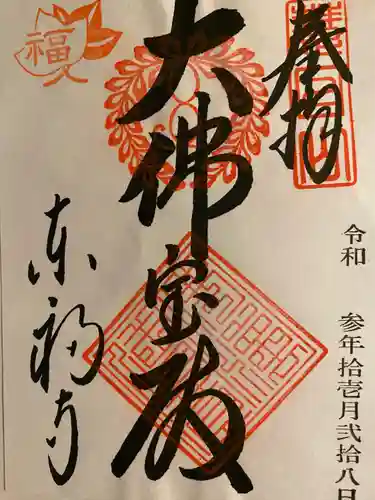 奉拝
令和 参年拾壱月弐拾八日
大佛宝殿
東福寺
福